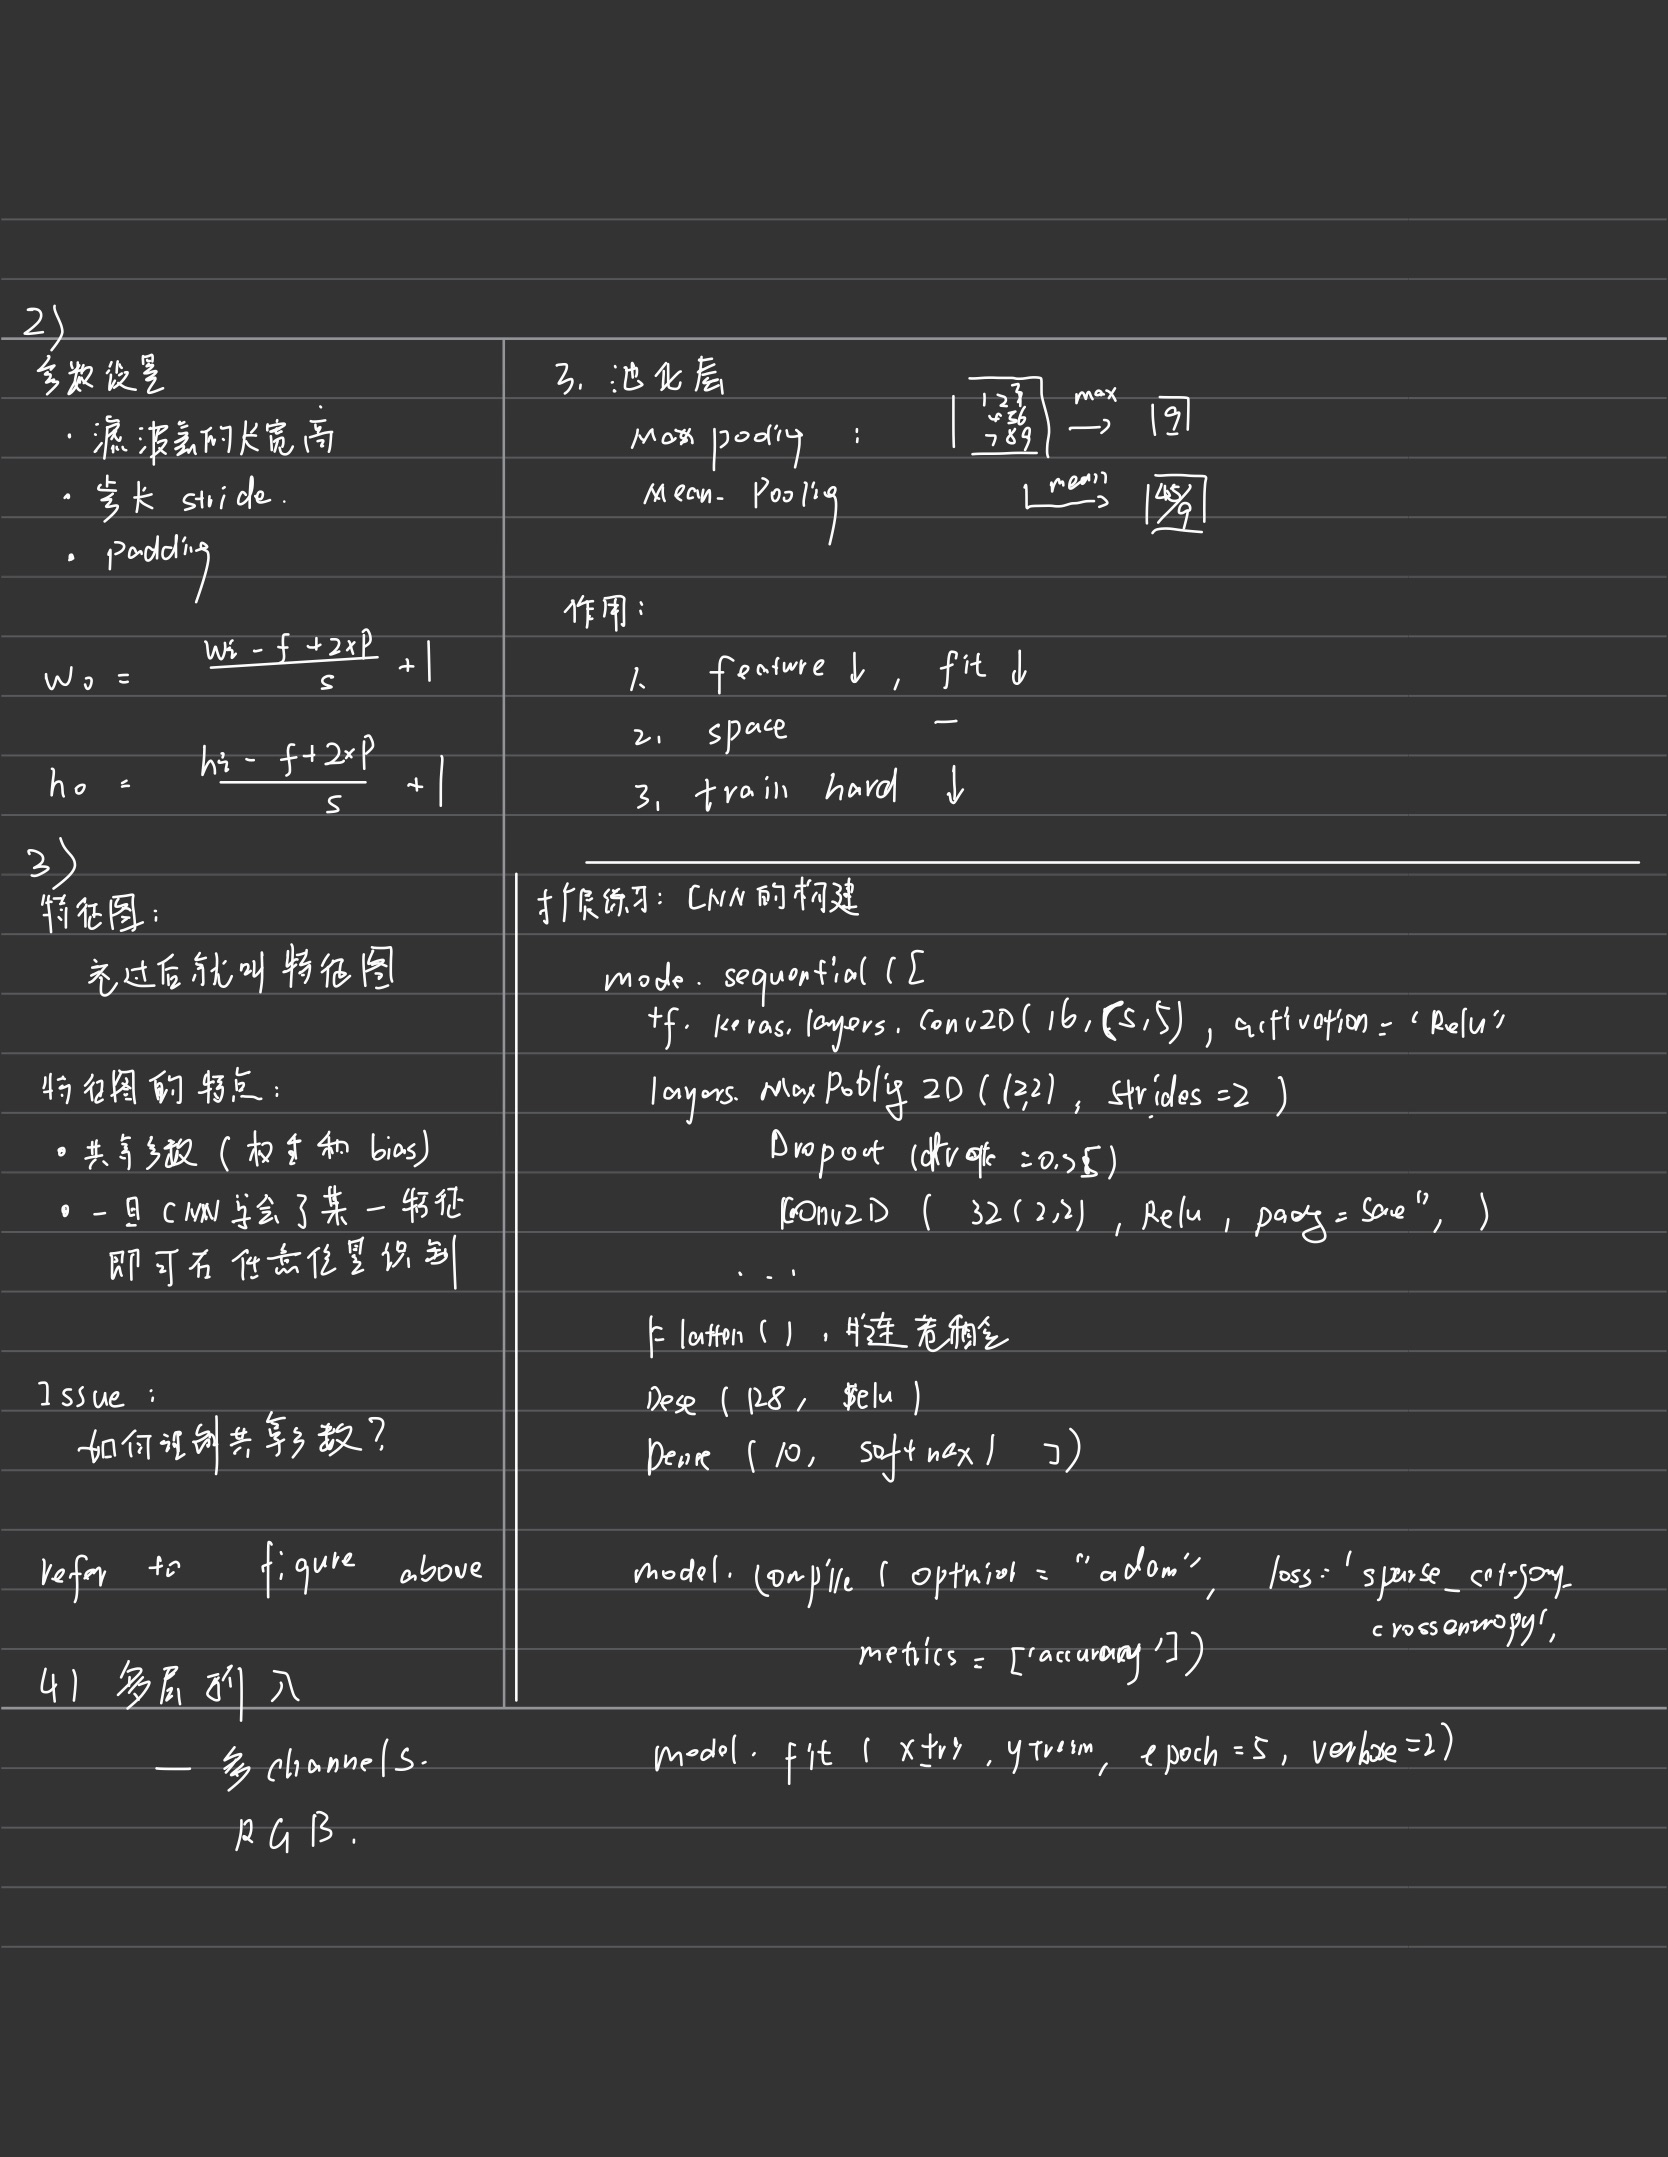 2)
参数设置
· 滤波器的长宽高
· 步长 stride.
· padding
wo = (wi - f + 2×p)/s + 1
ho = (hi - f + 2×p)/s + 1
3)
特征图:
卷过后就叫特征图
特征图的特点:
• 共享参数 (权重和 bias)
• 一旦 CNN 学会了某一特征
即可在任意位置识别
Issue:
如何理解共享参数?
refer to figure above
4) 多层引入
— 多 channels.
RGB.
3. 池化层
Max pooling :
Mean-Pooling
1 2 3
4 5 6
7 8 9
max
9
mean
45/9
作用:
1. feature ↓, fit ↓
2. space —
3. train hard ↓
扩展练习: CNN 的构建
mode. sequential ([
tf. keras. layers. Conv2D( 16, (5,5), activation = "Relu"
layers. MaxPooling 2D ( (2,2), strides = 2 )
Dropout
Conv2D ( 32 (2,2), Relu,
...
Flatten ( ),
Dense ( 128, Relu )
Dense ( 10, softmax ) ])
model. compile ( optimizer = "adam", loss = 'sparse_category_
crossentropy',
metrics = ['accuracy'])
model. fit ( , y train, epoch = 5, verbose = 2)